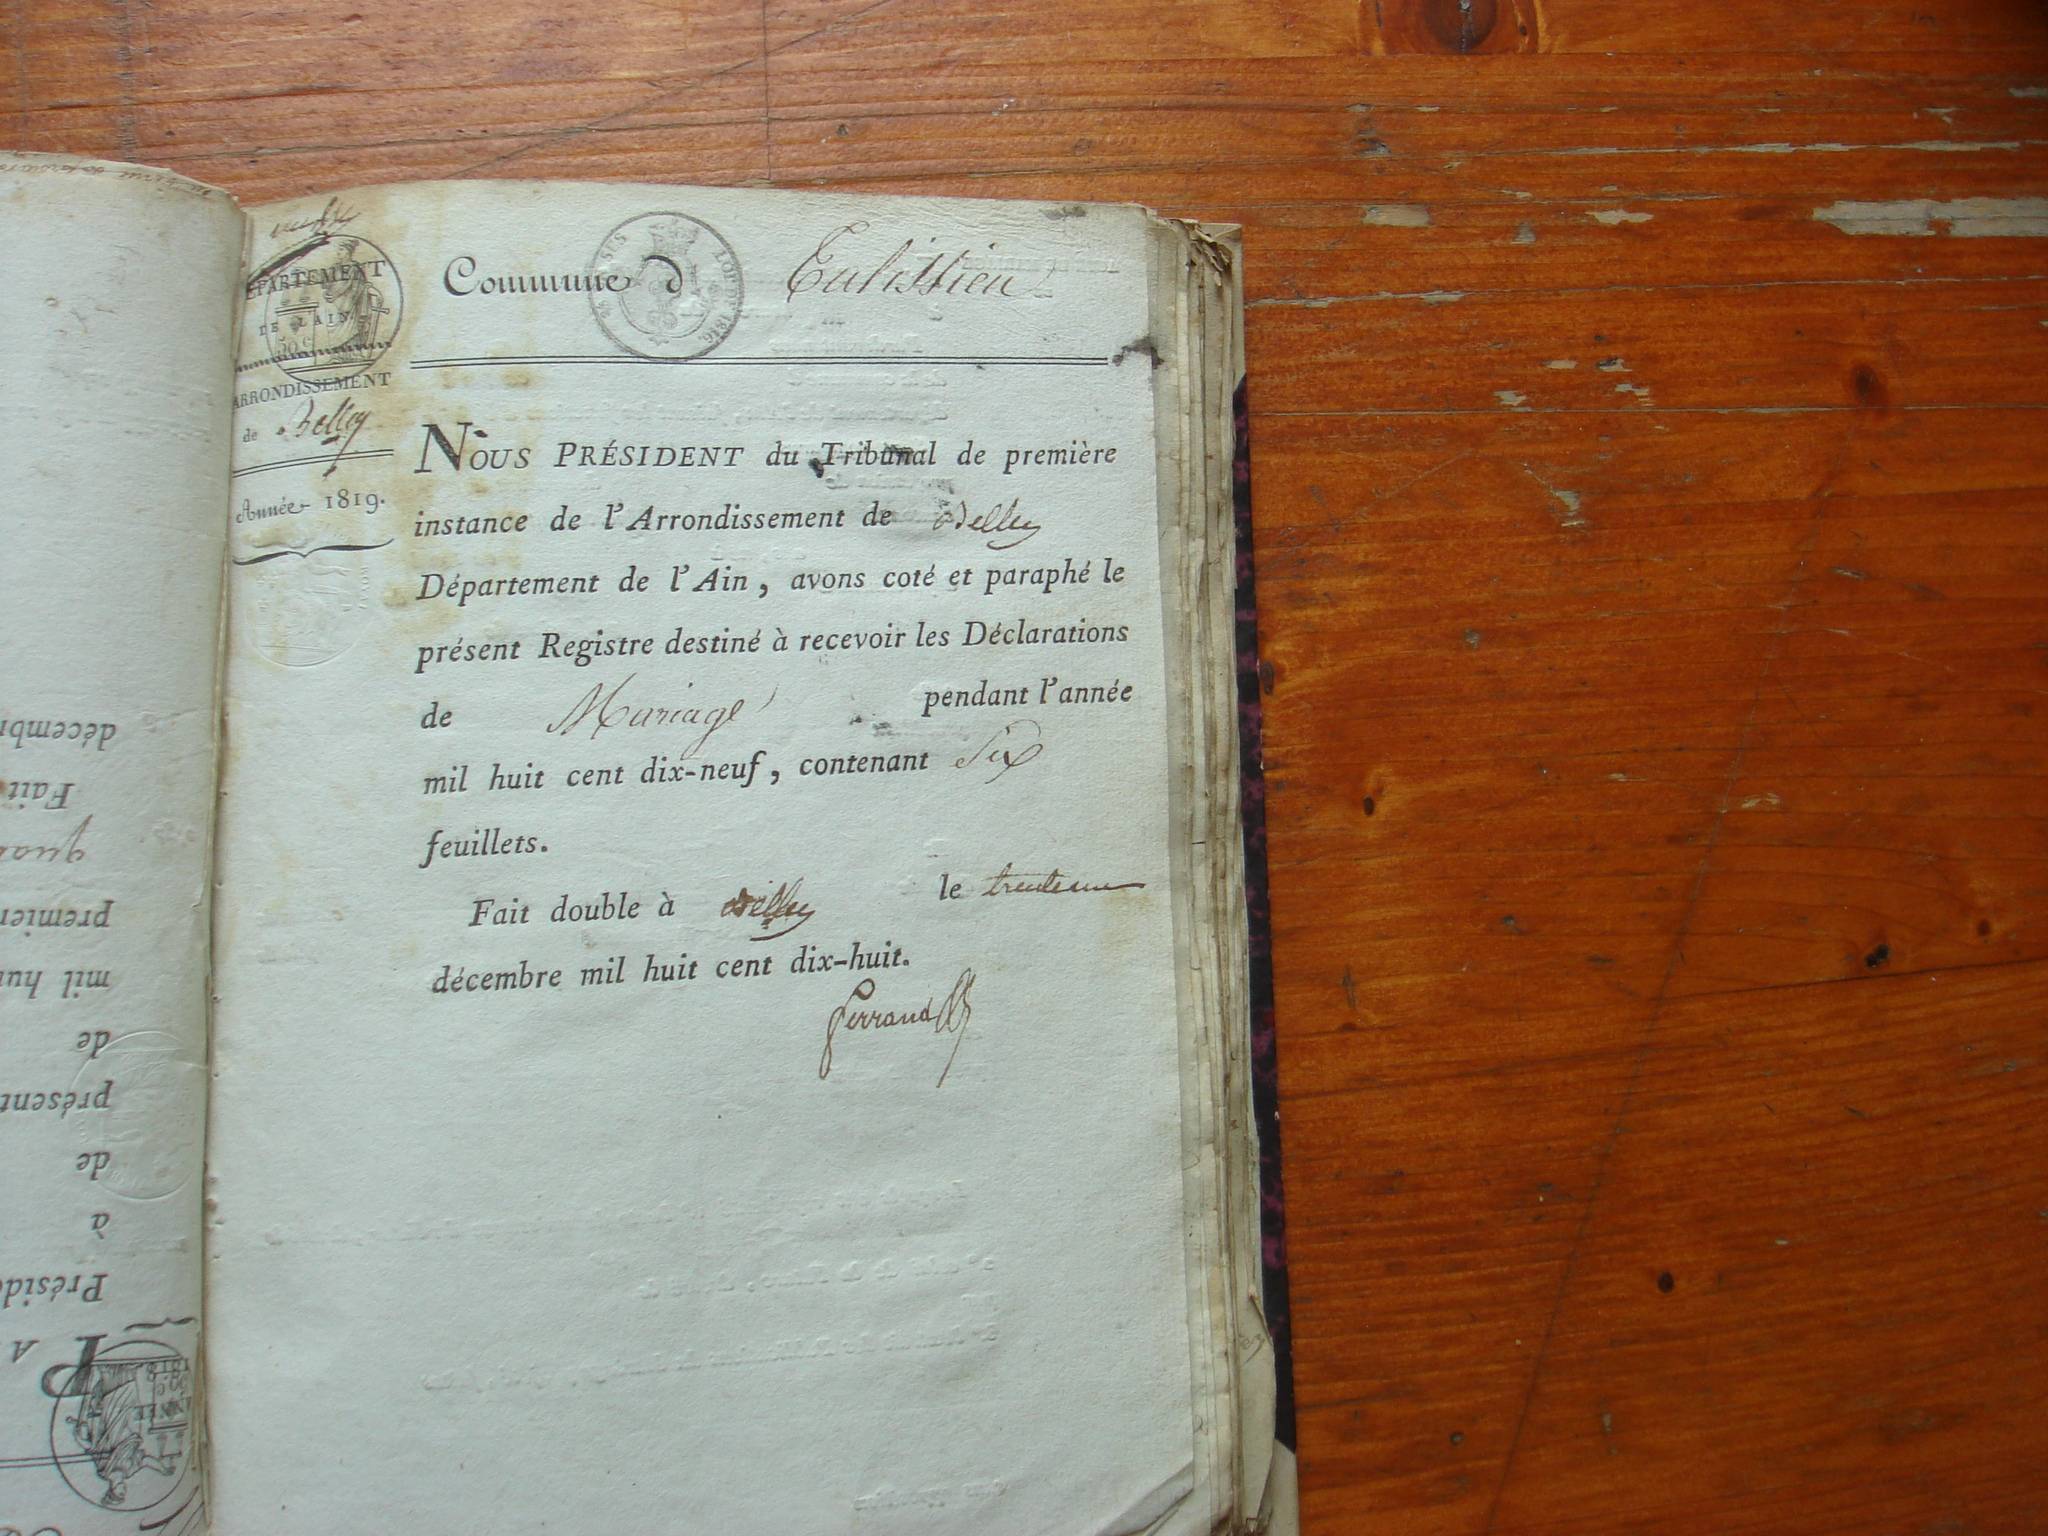 DÉPARTEMENT
DE L'AIN.
50 c
ARRONDISSEMENT
de Belley
Année 1819.
Commune d Talissieu
NOUS PRÉSIDENT du Tribunal de première
instance de l'Arrondissement de Belley
Département de l'Ain, avons coté et paraphé le
présent Registre destiné à recevoir les Déclarations
de Mariage pendant l'année
mil huit cent dix-neuf, contenant Six
feuillets.
Fait double à Belley le trente un
décembre mil huit cent dix-huit.
Ferrand
décemb
Fait
premier
mil hui
de
présent
de
à
Présid